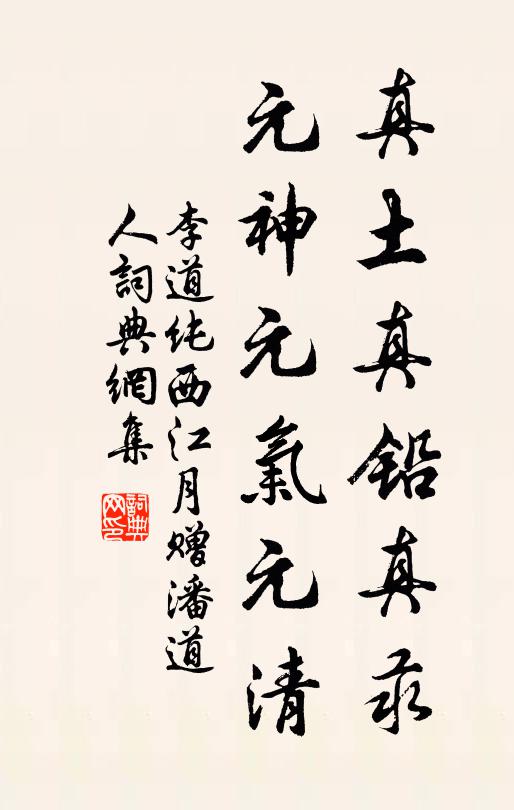 真土真鉛真汞
元神元氣元清
李道純西江月贈潘道
人詞典網集
詞典
网印